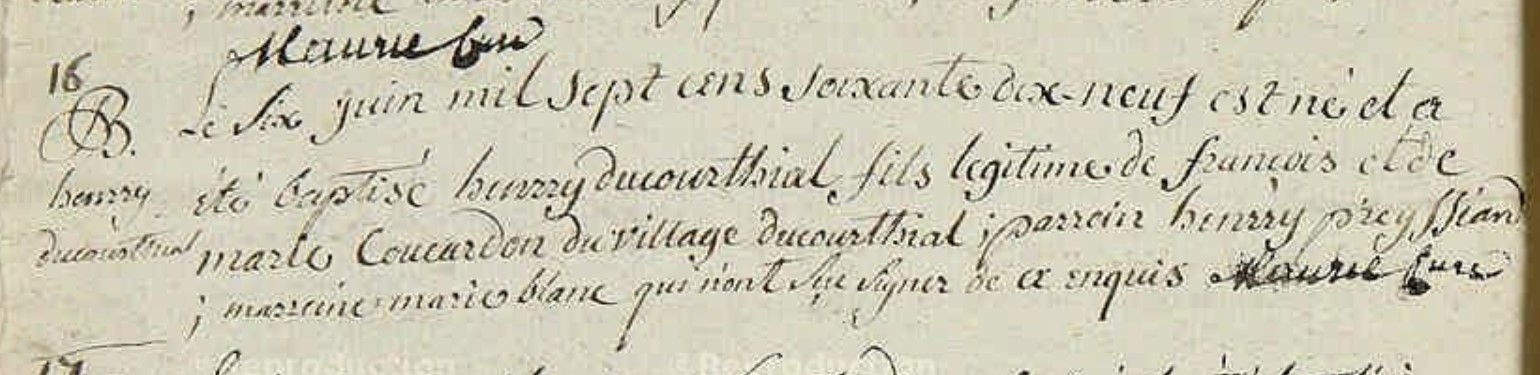 ; marraine
Maurie Curé
16
B.
henrry
ducourthial
Le Six juin mil Sept cens Soixante dix-neuf est né et a
été baptisé henrry ducourthial fils légitime de francois et de
marie Coucardon du village ducourthial ; parrain henrry preyssiand
; marraine marie blanc qui n'ont Sçu Signer de ce enquis Maurie Curé
17